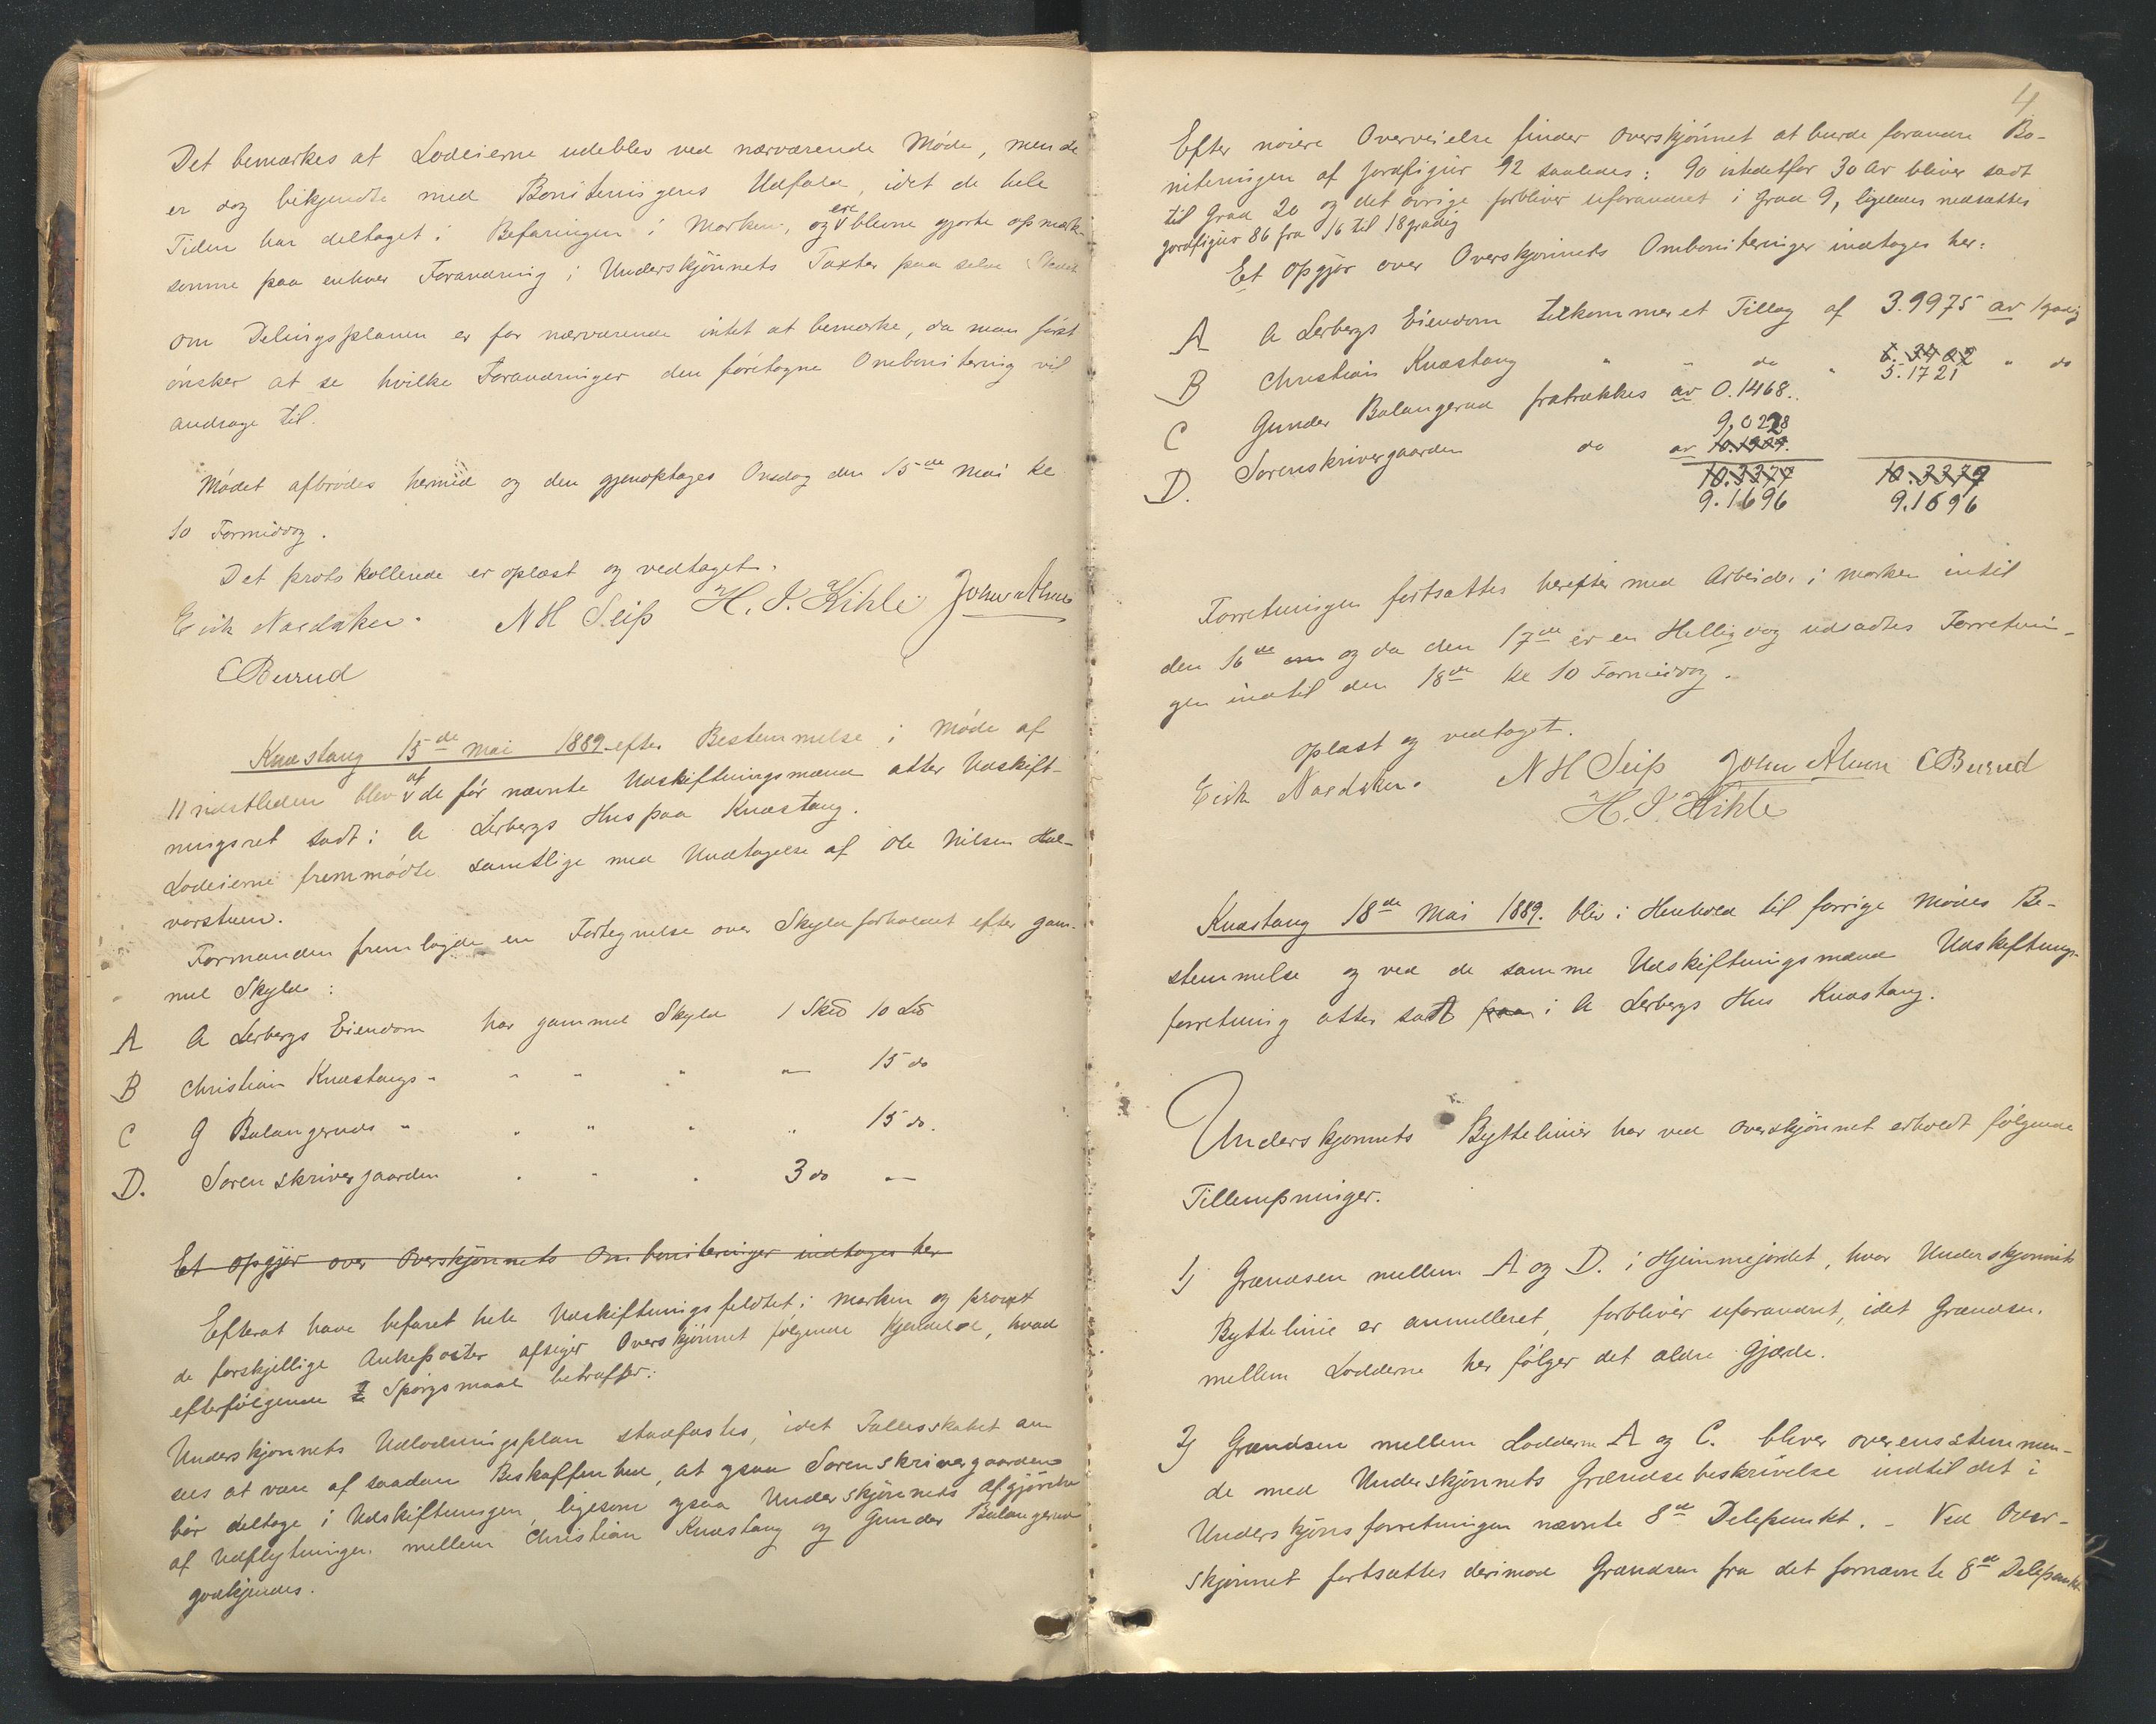 Det bemærkes at Lodeierne udeblev ved nærværende Møde, men de
er dog bekjendte med Boniteringens Udfald, idet de hele
Tiden har deltaget i Befaringen i Marken, og ere blevne gjorte opmærk-
somme paa enhver Forandring i Underskjønnets Taxter paa selve Stedet
Om Delingsplanen er for nærværende intet at bemærke, da man først
ønsker at se hvilke Forandringer den foretagne Ombonitering vil
andrage til.
Mødet afbrødes hermed og den gjenoptages Onsdag den 15de Mai kl
10 Formiddag.
Det protokollerede er oplæst og vedtaget.
Erik Nordaker. N H Seip H. J. Kihle John Alm
C Burud
Knæstang 15de Mai 1889 efter Bestemmelse i Møde af
11 næstleden blev af de før nævnte Udskiftningsmænd atter Udskift-
ningsret sadt i A Lerbergs Hus paa Knæstang.
Lodeierne fremmødte samtlige med Undtagelse af Ole Nilsen Hal-
vorstuen.
Formanden fremlagde en Fortegnelse over Skyldforholdet efter gam-
mel Skyld:
A A Lerbergs Eiendom har gammel Skyld 1 Skd 10 Ld
B Christian Knæstangs " " " " " 15 do
C G Bulangeruds " " " " " 15 do.
D. Sorenskrivergaarden " " " 3 do —
Et Opgjør over Overskjønnets Omboniteringer indtages her
Efterat have befaret hele Udskiftningsfeldtet i Marken og prøvet
de forskjellige Ankeposter afsiger Overskjønnet følgende Kjendelse, hvad
efterfølgende 2 Spørgsmaal betræffer:
Underskjønnets Udlodningsplan stadfæstes, idet Fællesskabet an-
sees at være af saadan Beskaffenhed, at ogsaa Sorenskrivergaarden
bør deltage i Udskiftningen, ligesom ogsaa Underskjønnets Afgjørelse
af Udflytningen mellem Christian Knæstang og Gunder Bulangerud
godkjendes.
4
Efter nøiere Overveielse finder Overskjønnet at burde forandre Bo-
niteringen af Jordfigur 92 saaledes: 90 istedetfor 30 Ar bliver sadt
til Grad 20 og det øvrige forbliver uforandret i Grad 9, ligeledes nedsættes
Jordfigur 86 fra 16 til 18 gradig
Et Opgjør over Overskjønnets Omboniteringer indtages her:
A A Lerbergs Eiendom tilkommer et Tillæg af 3.9975 ar 1gradig
B Christian Knæstang " " do " 6.3402 " do
5.1721
C Gunder Bulangerud fratrækkes ar 0.1468..
9,0228
D. Sorenskrivergaarden do ar 10.1909.
10.3377 10.3379
9.1696 9.1696
Forretningen fortsættes herefter med Arbeide i Marken indtil
den 16de om og da den 17de er en Helligdag udsadtes Forretnin-
gen indtil den 18de kl 10 Formiddag.
Oplæst og vedtaget.
Erik Nordaker. N H Seip John Alm C Burud
H. J. Kihle
Knæstang 18de Mai 1889. blev i Henhold til forrige Mødes Be-
stemmelse og ved de samme Udskiftningsmænd Udskiftnings-
forretning atter sadt paa i A Lerbergs Hus Knæstang.
Underskjønnets Byttelinier har ved Overskjønnet erholdt følgende
Tillempninger.
1) Grændsen mellem A og D. i Hjemmejordet, hvor Underskjønnets
Byttelinie er annulleret, forbliver uforandret, idet Grændsen
mellem Lodderne her følger det ældre Gjærde.
2) Grændsen mellem Lodderne A og C. bliver overensstemmen-
de med Underskjønnets Grændsebeskrivelse indtil det i
Underskjønsforretningen nævnte 8de Delepunkt. – Ved Over-
skjønnet fortsættes derimod Grændsen fra det fornævnte 8de Delepunkt